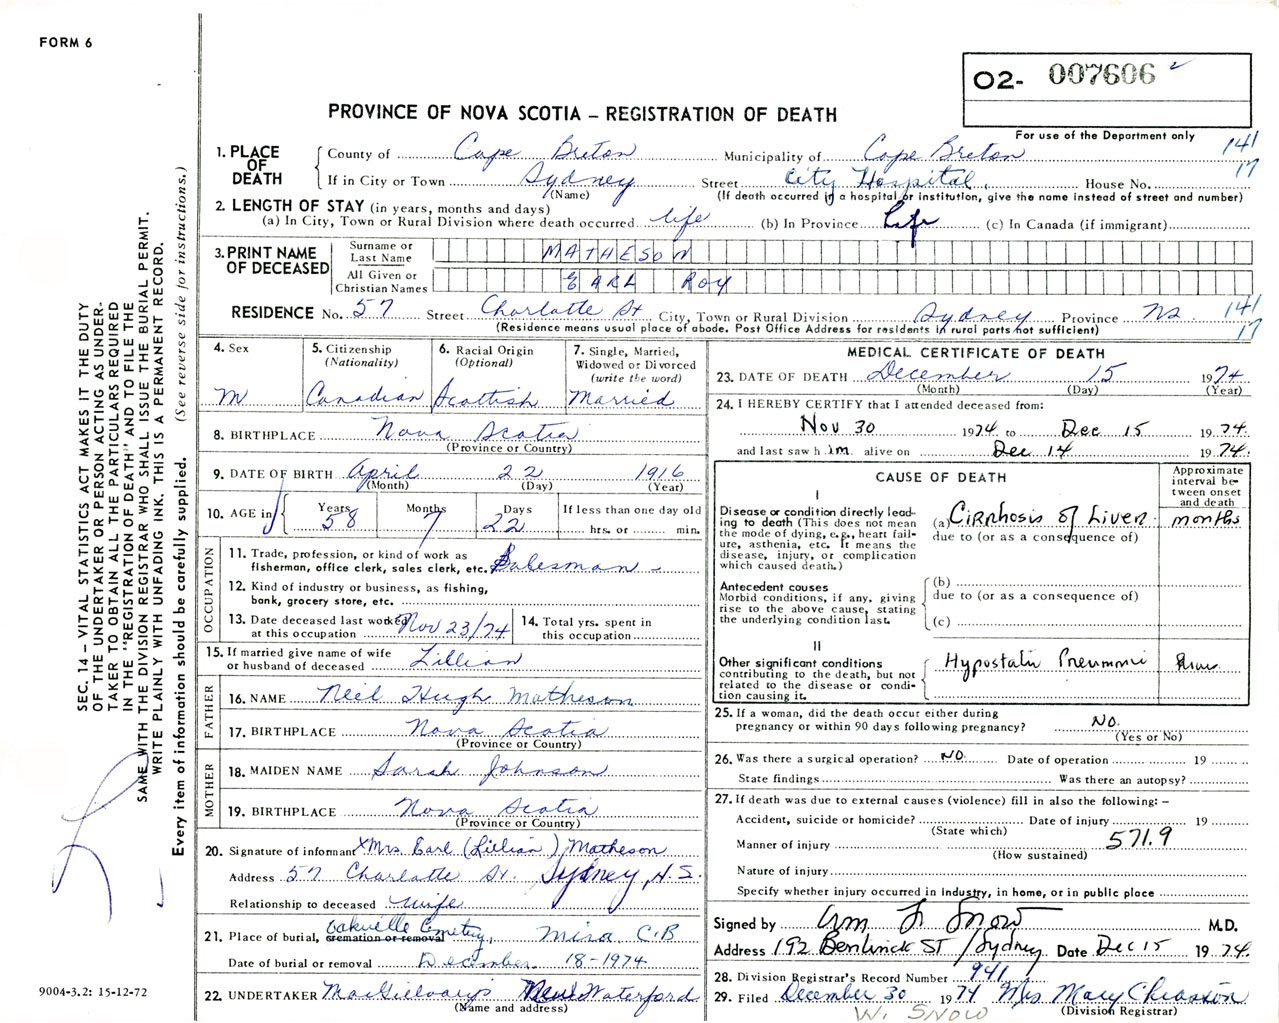 FORM 6
O2- 007606
PROVINCE OF NOVA SCOTIA – REGISTRATION OF DEATH
For use of the Department only
1. PLACE OF DEATH
County of Cape Breton Municipality of Cape Breton 141
If in City or Town Sydney Street City Hospital, House No. 17
(Name) (If death occurred in a hospital or institution, give the name instead of street and number)
2. LENGTH OF STAY (in years, months and days)
(a) In City, Town or Rural Division where death occurred life (b) In Province Life (c) In Canada (if immigrant)
3. PRINT NAME OF DECEASED
Surname or Last Name MATHESON
All Given or Christian Names EARL ROY
RESIDENCE No. 57 Street Charlotte St City, Town or Rural Division Sydney Province NS 141
(Residence means usual place of abode. Post Office Address for residents in rural parts not sufficient) 17
4. Sex
M
5. Citizenship
(Nationality)
Canadian
6. Racial Origin
(Optional)
Scottish
7. Single, Married,
Widowed or Divorced
(write the word)
Married
8. BIRTHPLACE Nova Scotia
(Province or Country)
9. DATE OF BIRTH April 22 1916
(Month) (Day) (Year)
10. AGE in Years 58 Months 7 Days 22 If less than one day old
hrs. or min.
OCCUPATION
11. Trade, profession, or kind of work as
fisherman, office clerk, sales clerk, etc. Salesman –
12. Kind of industry or business, as fishing,
bank, grocery store, etc.
13. Date deceased last worked
at this occupation Nov 23/74
14. Total yrs. spent in
this occupation
15. If married give name of wife
or husband of deceased Lillian
FATHER
16. NAME Neil Hugh Matheson
17. BIRTHPLACE Nova Scotia
(Province or Country)
MOTHER
18. MAIDEN NAME Sarah Johnson
19. BIRTHPLACE Nova Scotia
(Province or Country)
20. Signature of informant x Mrs. Earl (Lillian) Matheson
Address 57 Charlotte St. Sydney, N.S.
Relationship to deceased wife
21. Place of burial, cremation or removal Oakville Cemetery, Mira C.B
Date of burial or removal December 18-1974
22. UNDERTAKER New Waterford
(Name and address)
MEDICAL CERTIFICATE OF DEATH
23. DATE OF DEATH December 15 1974
(Month) (Day) (Year)
24. I HEREBY CERTIFY that I attended deceased from:
Nov 30 1974 to Dec 15 1974.
and last saw him alive on Dec 14 1974.
CAUSE OF DEATH
Approximate interval between onset and death
I
Disease or condition directly leading to death (This does not mean the mode of dying, e.g., heart failure, asthenia, etc. It means the disease, injury, or complication which caused death.)
(a) Cirrhosis of Liver months
due to (or as a consequence of)
Antecedent causes
Morbid conditions, if any, giving rise to the above cause, stating the underlying condition last.
(b)
due to (or as a consequence of)
(c)
II
Other significant conditions
contributing to the death, but not related to the disease or condition causing it.
Hypostatic Pneumonia
25. If a woman, did the death occur either during
pregnancy or within 90 days following pregnancy? No.
(Yes or No)
26. Was there a surgical operation? NO Date of operation 19
State findings Was there an autopsy?
27. If death was due to external causes (violence) fill in also the following: –
Accident, suicide or homicide? Date of injury 19
(State which)
Manner of injury 571.9
(How sustained)
Nature of injury
Specify whether injury occurred in industry, in home, or in public place
Signed by Wm F Snow M.D.
Address 192 Bentinck ST / Sydney Date Dec 15 1974.
28. Division Registrar's Record Number 941
29. Filed December 30 1974 Mrs Mary Chiasson
(Division Registrar)
W. SNOW
SEC. 14 – VITAL STATISTICS ACT MAKES IT THE DUTY
OF THE UNDERTAKER OR PERSON ACTING AS UNDER-
TAKER TO OBTAIN ALL THE PARTICULARS REQUIRED
IN THE "REGISTRATION OF DEATH" AND TO FILE THE
SAME WITH THE DIVISION REGISTRAR WHO SHALL ISSUE THE BURIAL PERMIT.
WRITE PLAINLY WITH UNFADING INK. THIS IS A PERMANENT RECORD.
Every item of information should be carefully supplied. (See reverse side for instructions.)
9004-3.2: 15-12-72